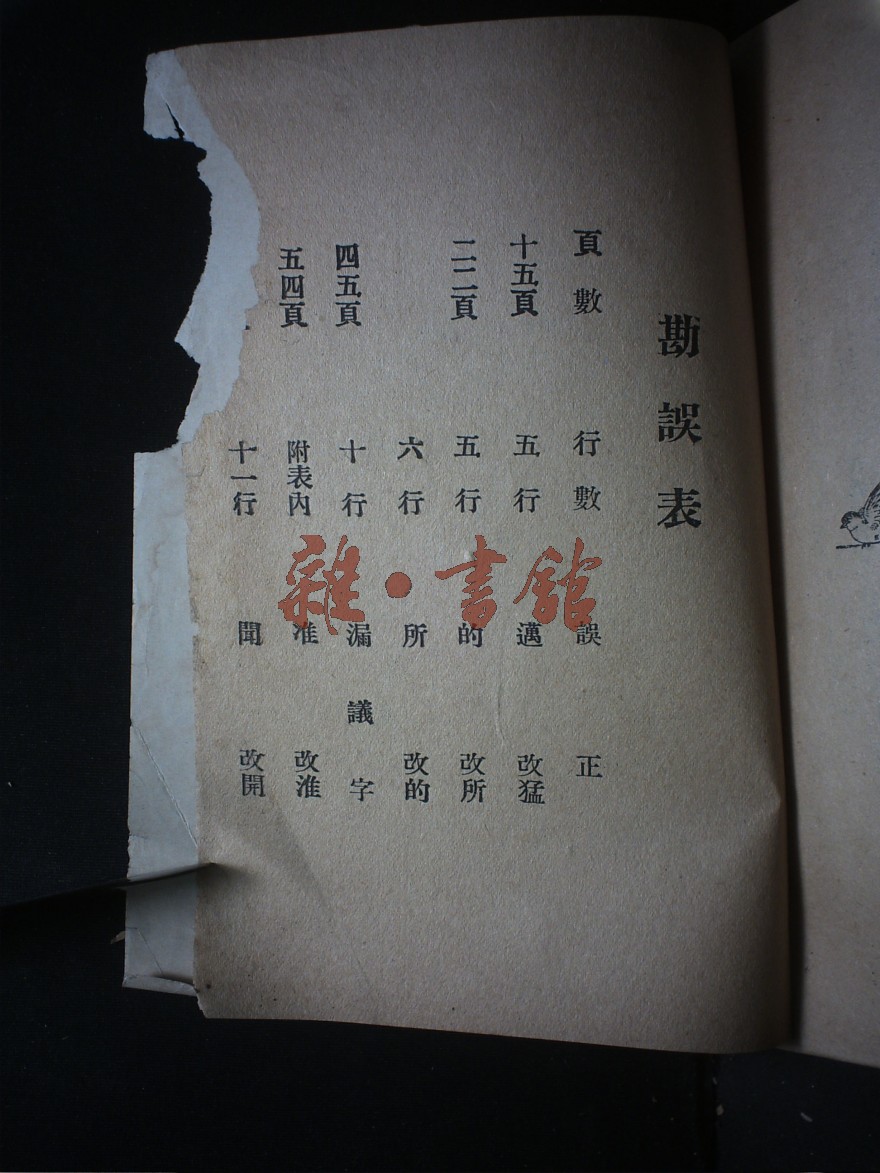 勘誤表
頁數 行數 誤 正
十五頁 五行 邁 改猛
二二頁 五行 的 改所
六行 所 改的
四五頁 十行 漏議字
五四頁 附表內 准 改淮
十一行 聞 改開
雜·書館